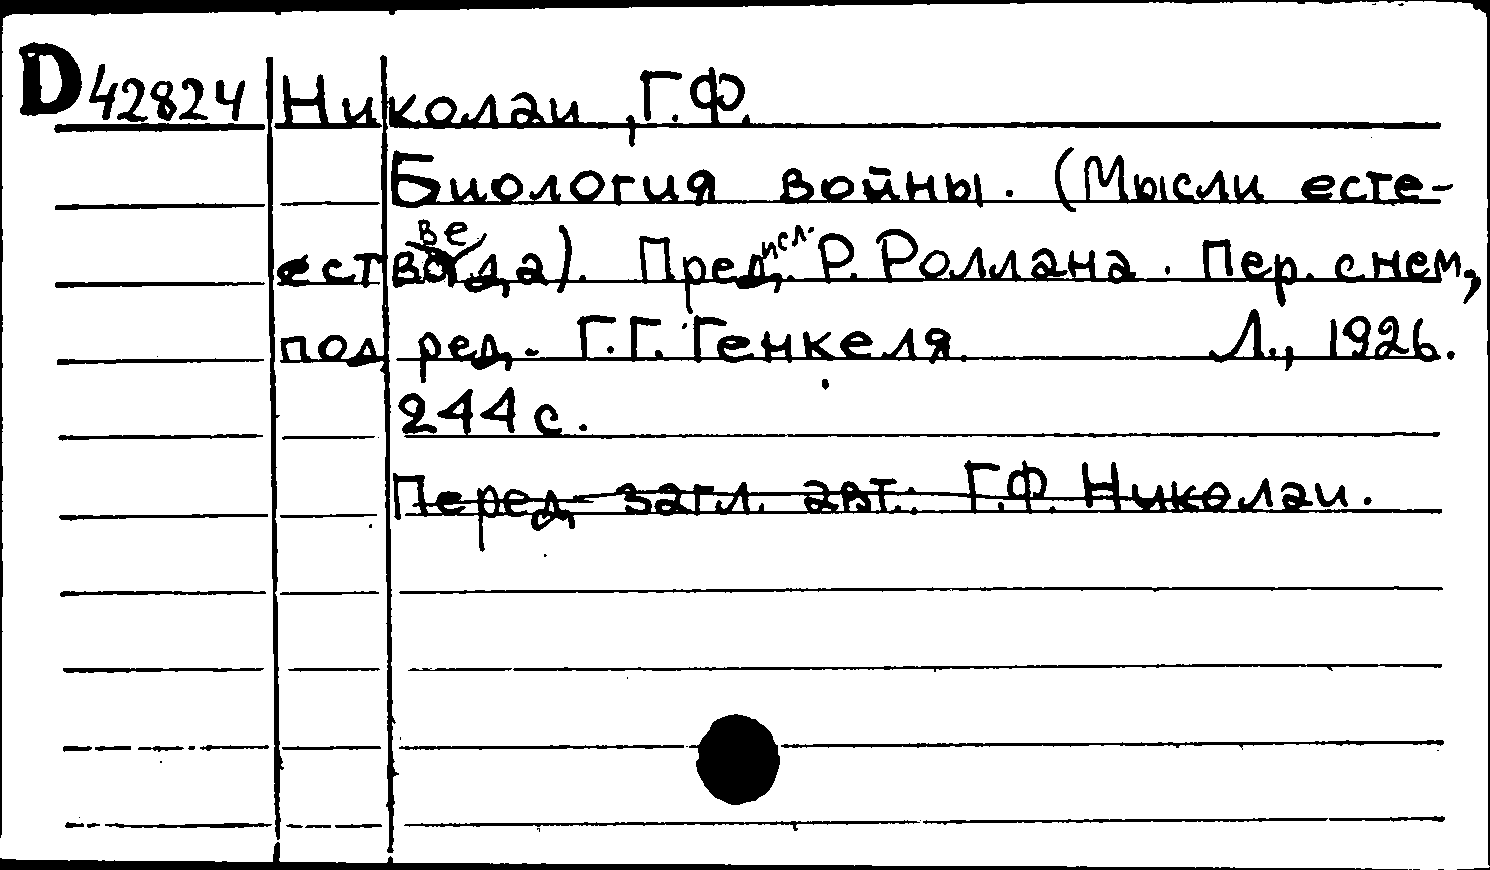 D 42824 Николаи, Г.Ф.
Биология войны. (Мысли есте-
ествоведа). Предисл. Р. Роллана. Пер. с нем,
под ред. Г.Г. Генкеля. Л., 1926.
244 с.
Перед загл. авт.: Г.Ф. Николаи.